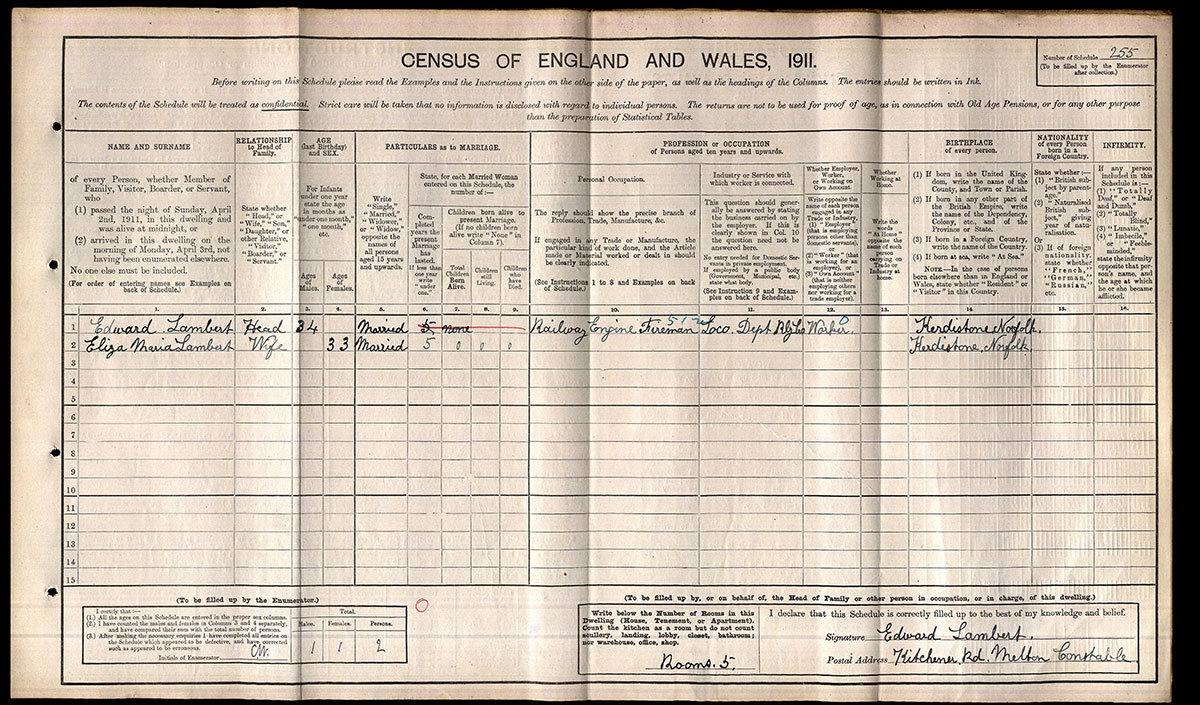 CENSUS OF ENGLAND AND WALES, 1911.
Number of Schedule 255
(To be filled up by the Enumerator
after collection.)
Before writing on this Schedule please read the Examples and the Instructions given on the other side of the paper, as well as the headings of the Columns. The entries should be written in Ink.
The contents of the Schedule will be treated as confidential. Strict care will be taken that no information is disclosed with regard to individual persons. The returns are not to be used for proof of age, as in connection with Old Age Pensions, or for any other purpose
than the preparation of Statistical Tables.
NAME AND SURNAME
of every Person, whether Member of
Family, Visitor, Boarder, or Servant,
who
(1) passed the night of Sunday, April
2nd, 1911, in this dwelling and
was alive at midnight, or
(2) arrived in this dwelling on the
morning of Monday, April 3rd, not
having been enumerated elsewhere.
No one else must be included.
(For order of entering names see Examples on
back of Schedule.)
1.
RELATIONSHIP
to Head of
Family.
State whether
"Head," or
"Wife," "Son,"
"Daughter," or
other Relative,
"Visitor,"
"Boarder," or
"Servant."
2.
AGE
(last Birthday)
and SEX.
For Infants
under one year
state the age
in months as
"under one month,"
"one month,"
etc.
Ages
of
Males.
3.
Ages
of
Females.
4.
PARTICULARS as to MARRIAGE.
Write
"Single,"
"Married,"
"Widower,"
or "Widow,"
opposite the
names of
all persons
aged 15 years
and upwards.
5.
State, for each Married Woman
entered on this Schedule, the
number of :—
Com-
pleted
years the
present
Marriage
has
lasted.
If less than
one year
write
"under
one."
6.
Children born alive to
present Marriage.
(If no children born
alive write "None" in
Column 7).
Total
Children
Born
Alive.
7.
Children
still
Living.
8.
Children
who
have
Died.
9.
PROFESSION or OCCUPATION
of Persons aged ten years and upwards.
Personal Occupation.
The reply should show the precise branch of
Profession, Trade, Manufacture, &c.
If engaged in any Trade or Manufacture, the
particular kind of work done, and the Article
made or Material worked or dealt in should
be clearly indicated.
(See Instructions 1 to 8 and Examples on back
of Schedule.)
10.
Industry or Service with
which worker is connected.
This question should gener-
ally be answered by stating
the business carried on by
the employer. If this is
clearly shown in Col. 10
the question need not be
answered here.
No entry needed for Domestic Ser-
vants in private employment.
If employed by a public body
(Government, Municipal, etc.)
state what body.
(See Instruction 9 and Exam-
ples on back of Schedule.)
11.
Whether Employer,
Worker,
or Working on
Own Account.
Write opposite the
name of each person
engaged in any
Trade or Industry,
(1) "Employer"
(that is employing
persons other than
domestic servants),
or
(2) "Worker" (that
is working for an
employer), or
(3) "Own Account"
(that is neither
employing others
nor working for a
trade employer).
12.
Whether
Working at
Home.
Write the
words
"At Home"
opposite the
name of
each person
carrying on
Trade or
Industry at
home.
13.
BIRTHPLACE
of every person.
(1) If born in the United King-
dom, write the name of the
County, and Town or Parish.
(2) If born in any other part of
the British Empire, write
the name of the Dependency,
Colony, etc., and of the
Province or State.
(3) If born in a Foreign Country,
write the name of the Country.
(4) If born at sea, write "At Sea."
NOTE.—In the case of persons
born elsewhere than in England or
Wales, state whether "Resident" or
"Visitor" in this Country.
14.
NATIONALITY
of every Person
born in a
Foreign Country.
State whether :—
(1) "British sub-
ject by parent-
age."
(2) "Naturalised
British sub-
ject," giving
year of natu-
ralisation.
Or
(3) If of foreign
nationality,
state whether
"French,"
"German,"
"Russian,"
etc.
15.
INFIRMITY.
If any person
included in this
Schedule is :—
(1) "Totally
Deaf," or "Deaf
and Dumb,"
(2) "Totally
Blind,"
(3) "Lunatic,"
(4) "Imbecile,"
or "Feeble-
minded,"
state the infirmity
opposite that per-
son's name, and
the age at which
he or she became
afflicted.
16.
1 Edward Lambert Head 34 Married 5 none Railway Engine Fireman Loco. Dept Worker Kerdistone, Norfolk.
2 Eliza Maria Lambert Wife 33 Married 5 0 0 0 Kerdistone, Norfolk.
3
4
5
6
7
8
9
10
11
12
13
14
15
(To be filled up by the Enumerator.)
I certify that :—
(1.) All the ages on this Schedule are entered in the proper sex columns.
(2.) I have counted the males and females in Columns 3 and 4 separately,
and have compared their sum with the total number of persons.
(3.) After making the necessary enquiries I have completed all entries on
the Schedule which appeared to be defective, and have corrected
such as appeared to be erroneous.
Initials of Enumerator
Total.
Males. Females. Persons.
1 1 2
(To be filled up by, or on behalf of, the Head of Family or other person in occupation, or in charge, of this dwelling.)
Write below the Number of Rooms in this
Dwelling (House, Tenement, or Apartment).
Count the kitchen as a room but do not count
scullery, landing, lobby, closet, bathroom;
nor warehouse, office, shop.
Rooms. 5.
I declare that this Schedule is correctly filled up to the best of my knowledge and belief.
Signature Edward Lambert.
Postal Address Kitchener Rd. Melton Constable.